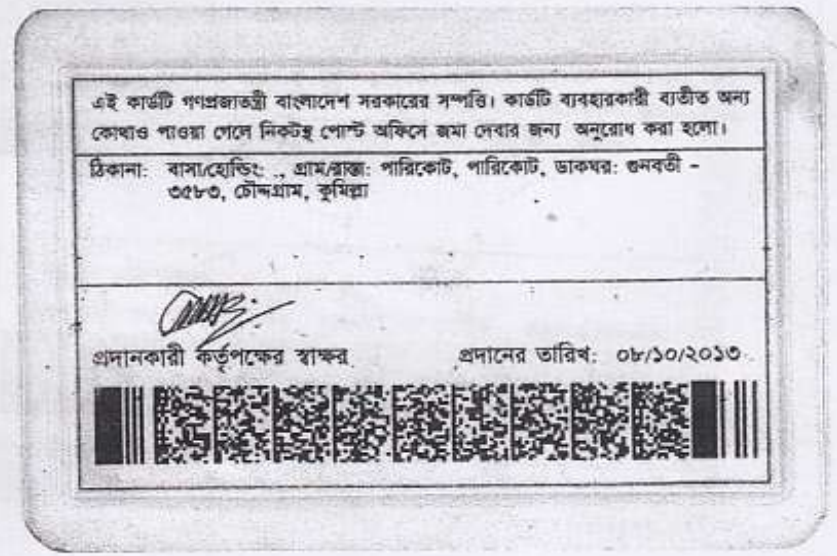 এই কার্ডটি গণপ্রজাতন্ত্রী বাংলাদেশ সরকারের সম্পত্তি। কার্ডটি ব্যবহারকারী ব্যতীত অন্য
কোথাও পাওয়া গেলে নিকটস্থ পোস্ট অফিসে জমা দেবার জন্য অনুরোধ করা হলো।
ঠিকানা: বাসা/হোল্ডিং: ., গ্রাম/রাস্তা: পারিকোট, পারিকোট, ডাকঘর: গুনবতী -
৩৫৮৩, চৌদ্দগ্রাম, কুমিল্লা
প্রদানকারী কর্তৃপক্ষের স্বাক্ষর প্রদানের তারিখ: ০৮/১০/২০১৩